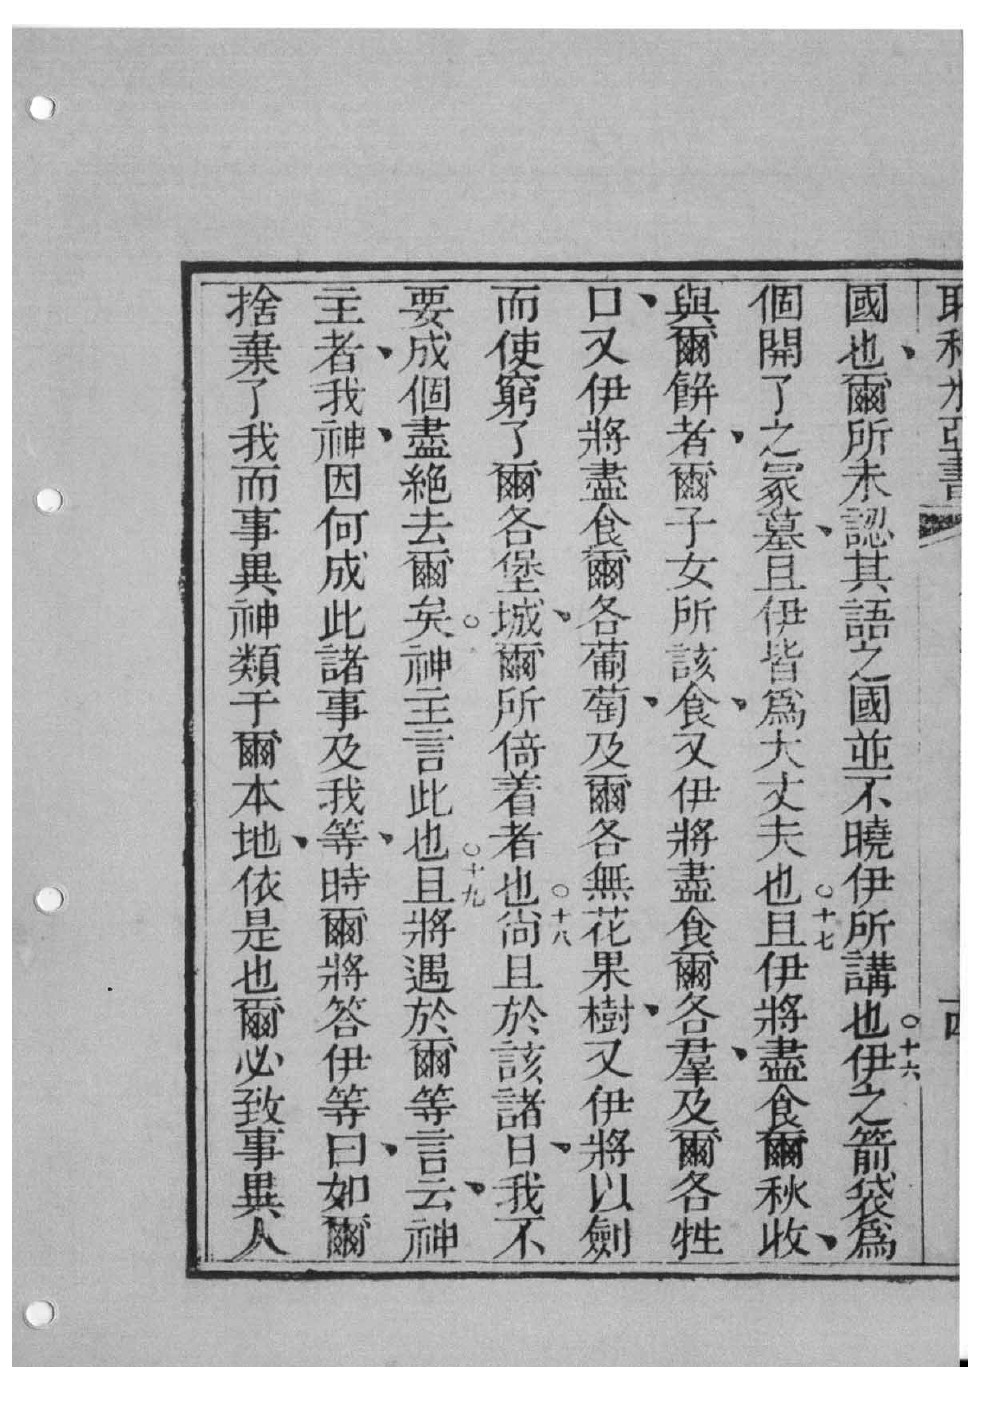 國也、爾所未認其語之國並不曉伊所講也○十六伊之箭袋爲
個開了之冢墓、且伊皆爲大丈夫也○十七且伊將盡食爾秋收、
與爾餅者、爾子女所該食、又伊將盡食爾各羣、及爾各牲
口、又伊將盡食爾各葡萄、及爾各無花果樹、又伊將以劍
而使窮了爾各堡城、爾所倚着者也○十八尙且於該諸日、我不
要成個盡絕去爾矣○神主言此也○十九且將遇於爾等言云、神
主者、我神、因何成此諸事及我等、時爾將答伊等曰、如爾
捨棄了我而事異神類于爾本地、依是也爾必致事異人